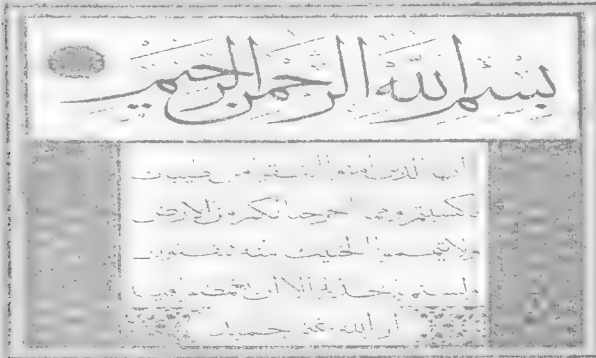 بسم الله الرحمن الرحيم
ايها الذين امنوا انفقوا من طيبات
ما كسبتم ومما اخرجنا لكم من الارض
ولا تيمموا الخبيث منه تنفقون
ولستم بآخذيه الا ان تغمضوا فيه
ان الله غني حميد